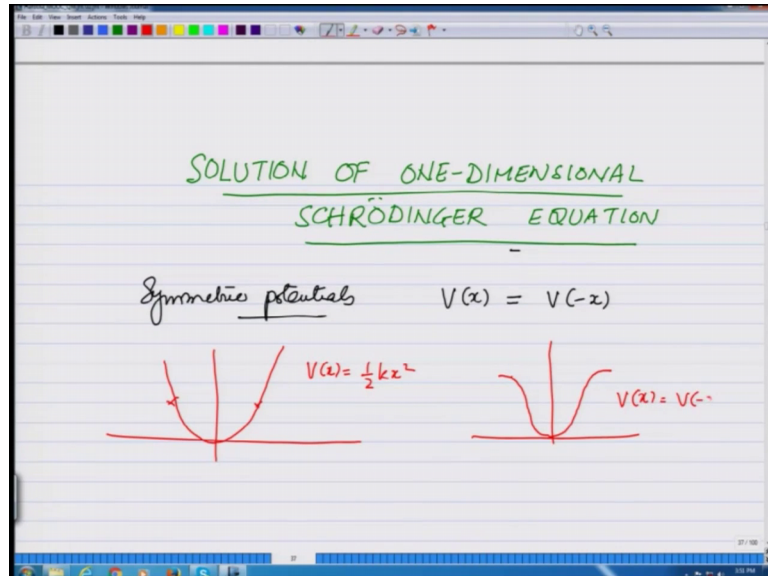 File Edit View Insert Actions Tools Help
SOLUTION OF ONE-DIMENSIONAL
SCHRÖDINGER EQUATION
Symmetric potentials V(x) = V(-x)
V(x) = ½ kx²
V(x) = V(-
37 / 100
37
3:32 PM